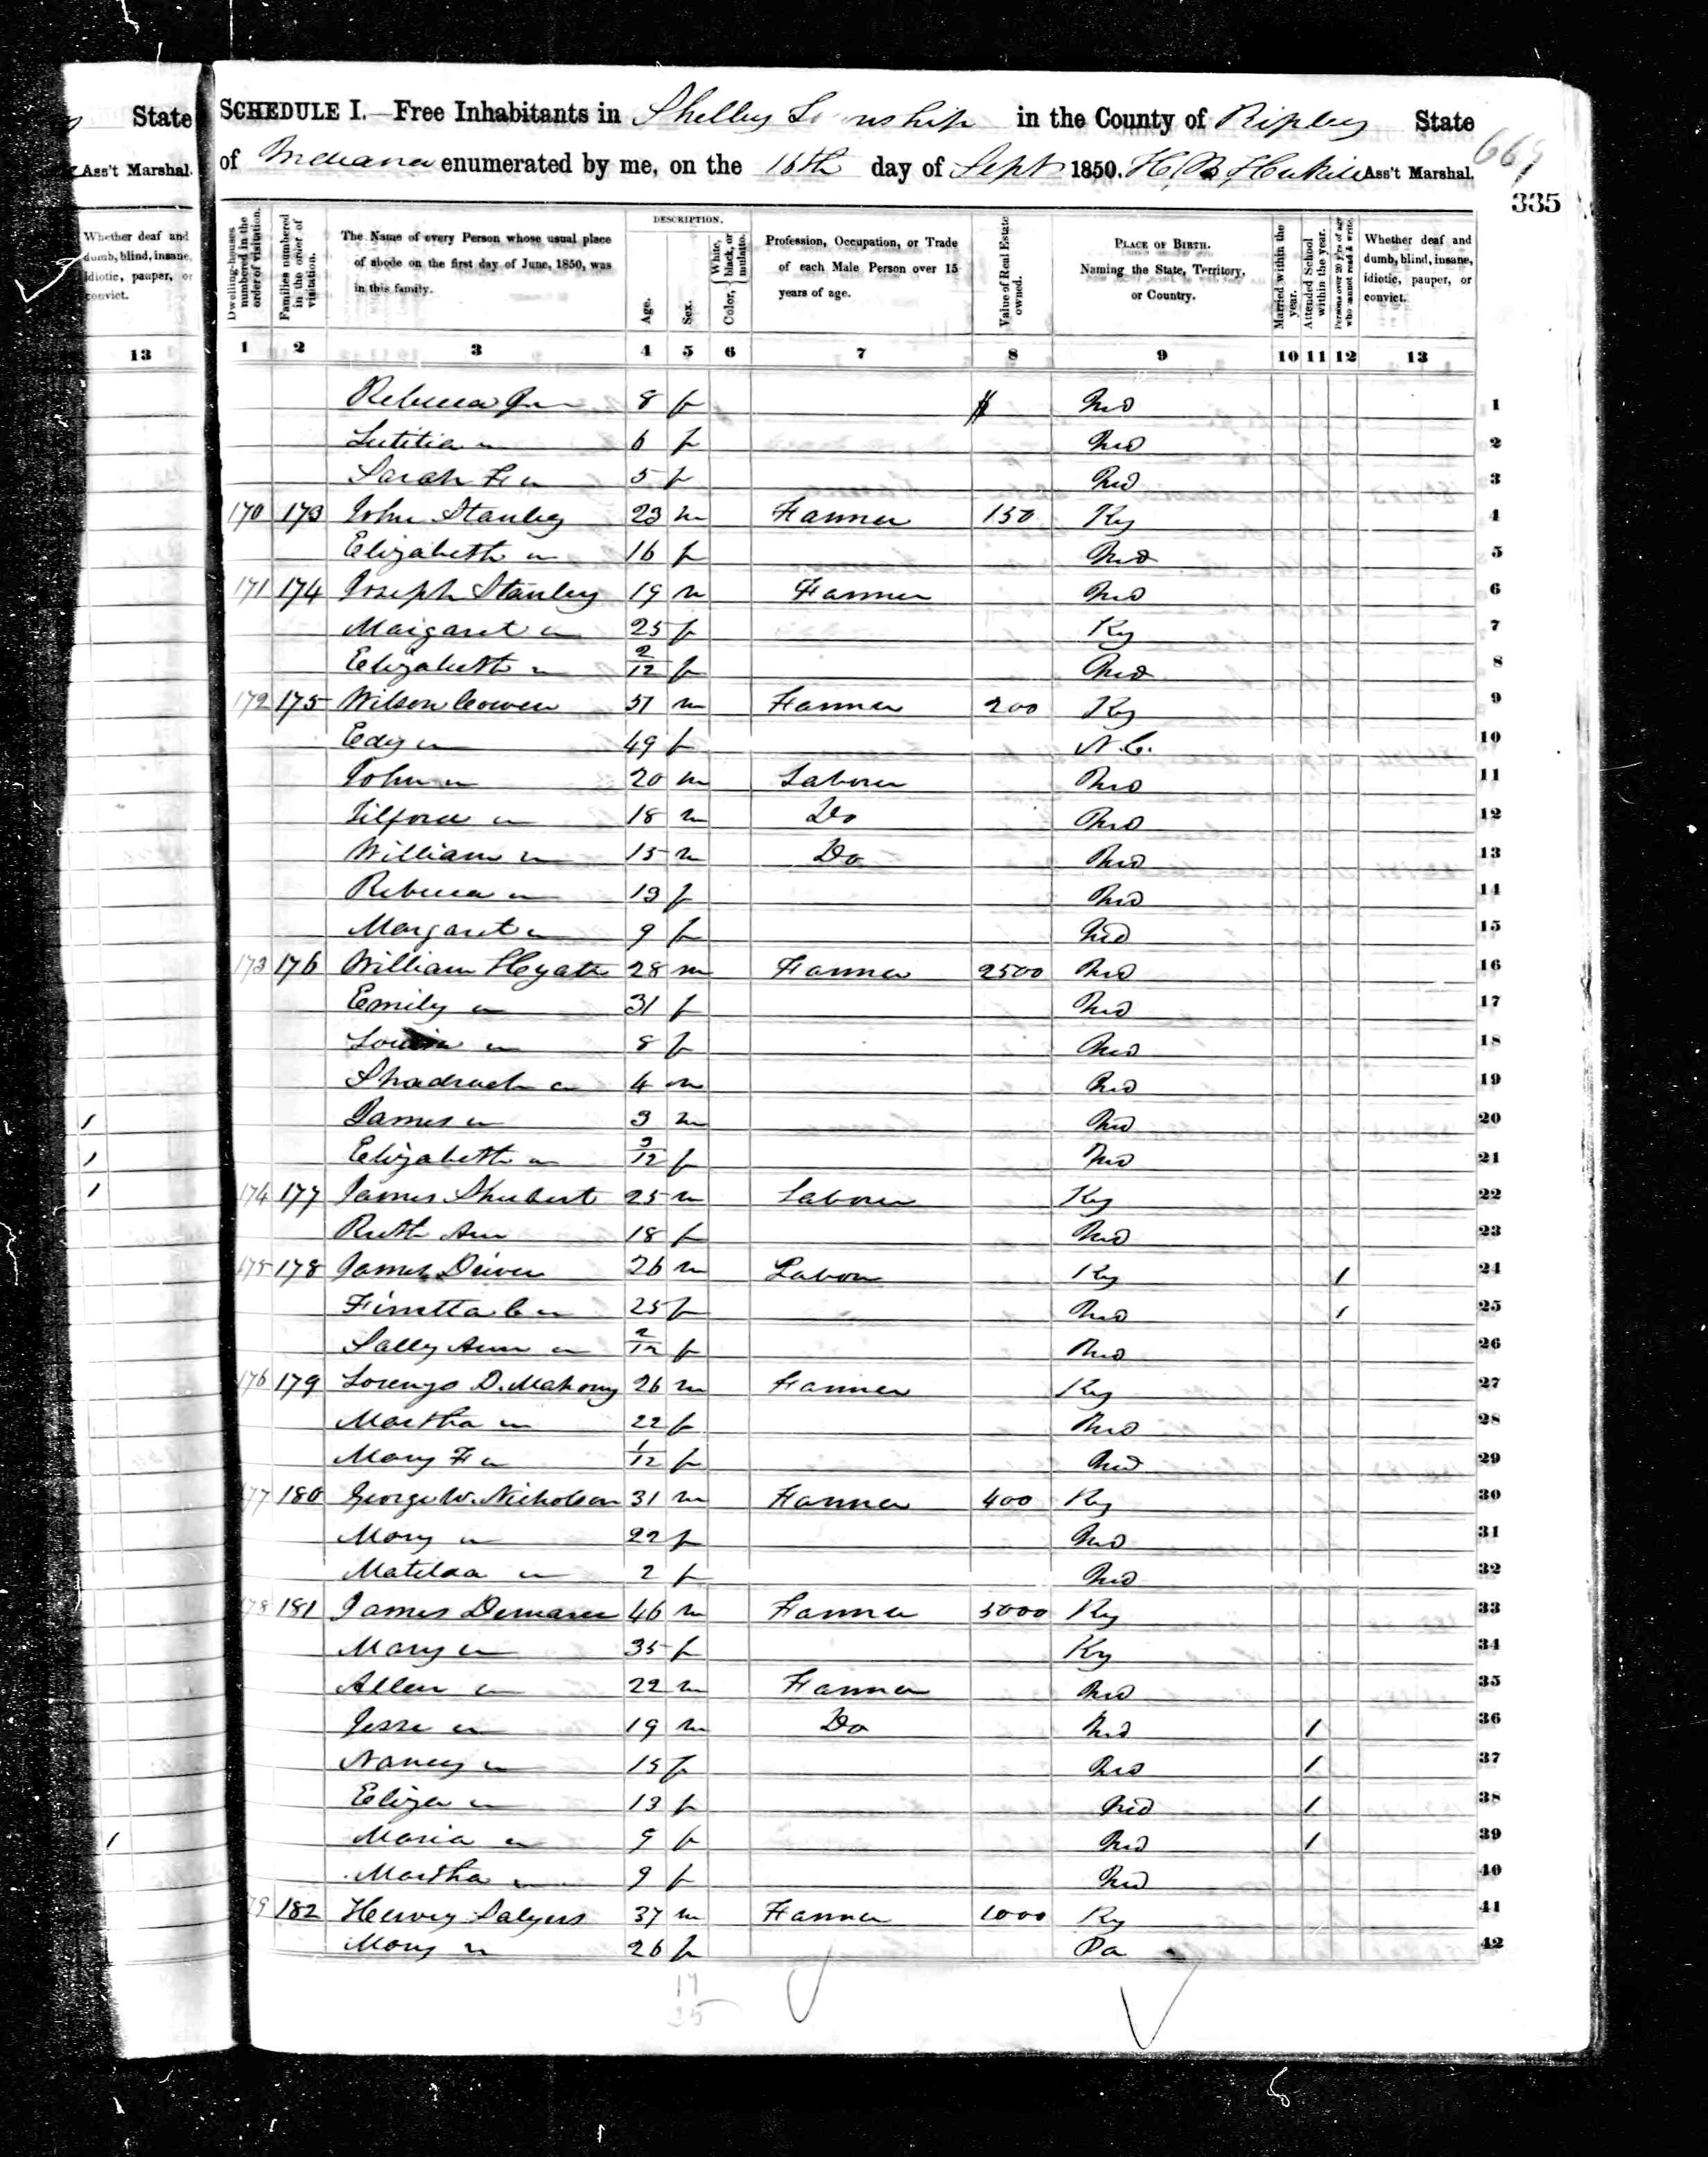 State
Ass't Marshal.
Whether deaf and
dumb, blind, insane,
idiotic, pauper, or
convict.
13
SCHEDULE I. Free Inhabitants in Shelby Township in the County of Ripley State
of Indiana enumerated by me, on the 16th day of Sept 1850. H. B. Ass't Marshal.
669
335
Dwelling-houses numbered in the order of visitation.
Families numbered in the order of visitation.
The Name of every Person whose usual place of abode on the first day of June, 1850, was in this family.
DESCRIPTION.
Age.
Sex.
Color, White, black, or mulatto.
Profession, Occupation, or Trade of each Male Person over 15 years of age.
Value of Real Estate owned.
PLACE OF BIRTH. Naming the State, Territory, or Country.
Married within the year.
Attended School within the year.
Persons over 20 y'rs of age who cannot read & write.
Whether deaf and dumb, blind, insane, idiotic, pauper, or convict.
1 2 3 4 5 6 7 8 9 10 11 12 13
Rebecca 8 f $ Ind 1
Lutitia " 6 f Ind 2
Sarah F " 5 f Ind 3
170 173 John Stanley 23 m Farmer 150 Ky 4
Elizabeth " 16 f Ind 5
171 174 Joseph Stanley 19 m Farmer Ind 6
Margaret " 25 f Ky 7
Elizabeth " 2/12 f Ind 8
172 175 Wilson Cowen 51 m Farmer 200 Ky 9
Edy " 49 f N.C. 10
John " 20 m Laborer Ind 11
Tilford " 18 m Do Ind 12
William " 15 m Do Ind 13
Rebecca " 13 f Ind 14
Margaret " 9 f Ind 15
173 176 William Hyatt 28 m Farmer 2500 Ind 16
Emily " 31 f Ind 17
Louisa " 8 f Ind 18
Shadrach " 4 m Ind 19
James " 3 m Ind 20
Elizabeth " 3/12 f Ind 21
174 177 James Shubert 25 m Laborer Ky 22
Ruth Ann 18 f Ind 23
175 178 James Driver 26 m Labor Ky 1 24
C " 25 f Ind 1 25
Sally Ann " 2/12 f Ind 26
176 179 Lorenzo D. Mahony 26 m Farmer Ky 27
Martha " 22 f Ind 28
Mary F " 1/12 f Ind 29
177 180 George W. Nicholson 31 m Farmer 400 Ky 30
Mary " 22 f Ind 31
Matilda " 2 f Ind 32
178 181 James Demaree 46 m Farmer 5000 Ky 33
Mary " 35 f Ky 34
Allen " 22 m Farmer Ind 35
Jesse " 19 m Do Ind 1 36
Nancy " 15 f Ind 1 37
Eliza " 13 f Ind 1 38
Maria " 9 f Ind 1 39
Martha " 9 f Ind 40
179 182 Hervey Salyers 37 m Farmer 1000 Ky 41
Mary " 26 f Pa 42
17
25